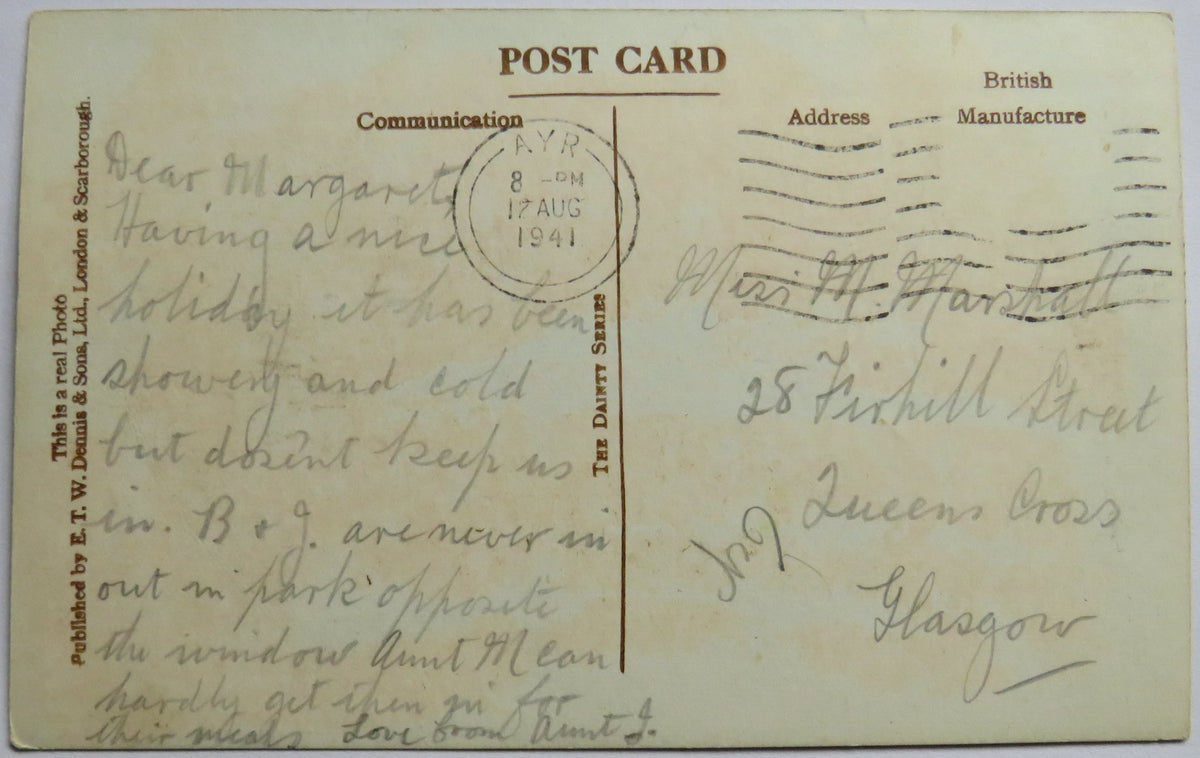 POST CARD
British
Manufacture
Communication
Address
This is a real Photo
Published by E. T. W. Dennis & Sons, Ltd., London & Scarborough.
THE DAINTY SERIES
AYR
8 - PM
12 AUG
1941
Dear Margaret
Having a nice
holiday it has been
showery and cold
but dosent keep us
in. B & J. are never in
out in park opposite
the window Aunt M can
hardly get them in for
their meals Love from Aunt J.
Miss M. Marshall
28 Firhill Street
Queens Cross
Glasgow